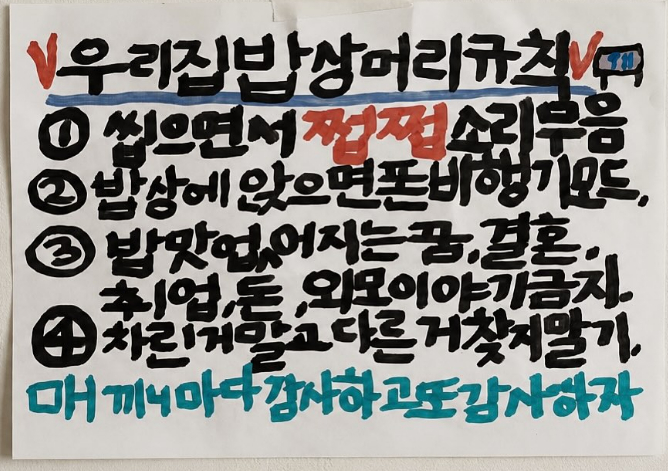 V우리집밥상머리규칙V
① 씹으면서 쩝쩝 소리무음
② 밥상에 앉으면폰비행기모드,
③ 밥맛업,어지는꿈,결혼,
취업,돈,외모이야기금지.
④ 차린거말고다른거찾지말기.
매 끼니마다감사하고또감사하자